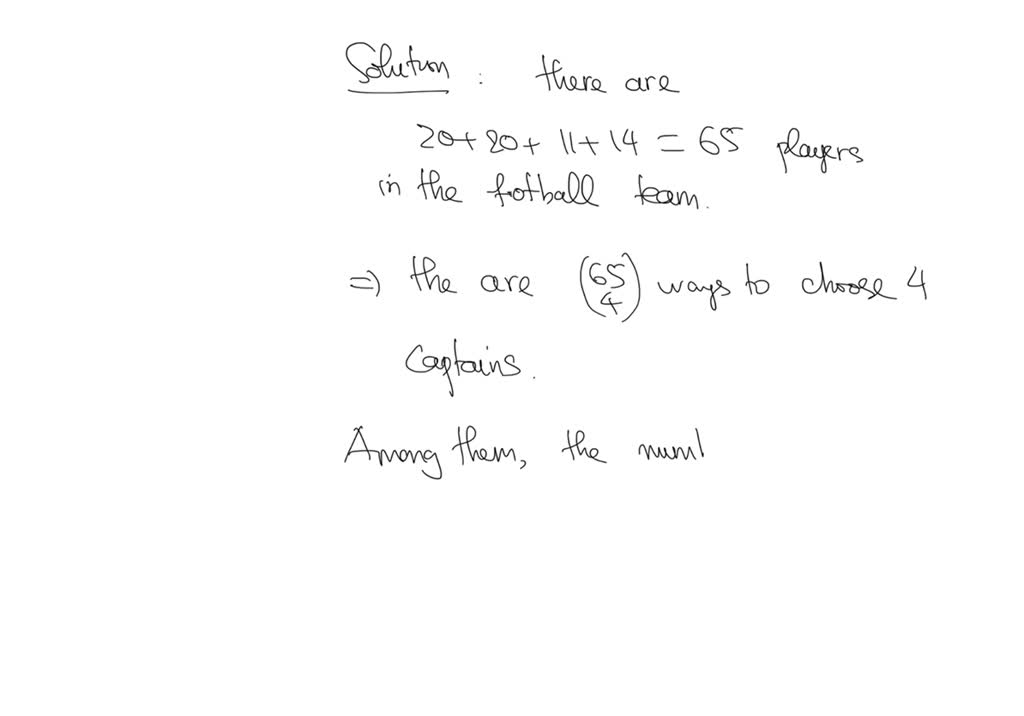 Solution : there are
20+20+ 11+ 14 = 65 players
in the football team.
=) the are (65 4) ways to choose 4
Captains.
Among them, the num